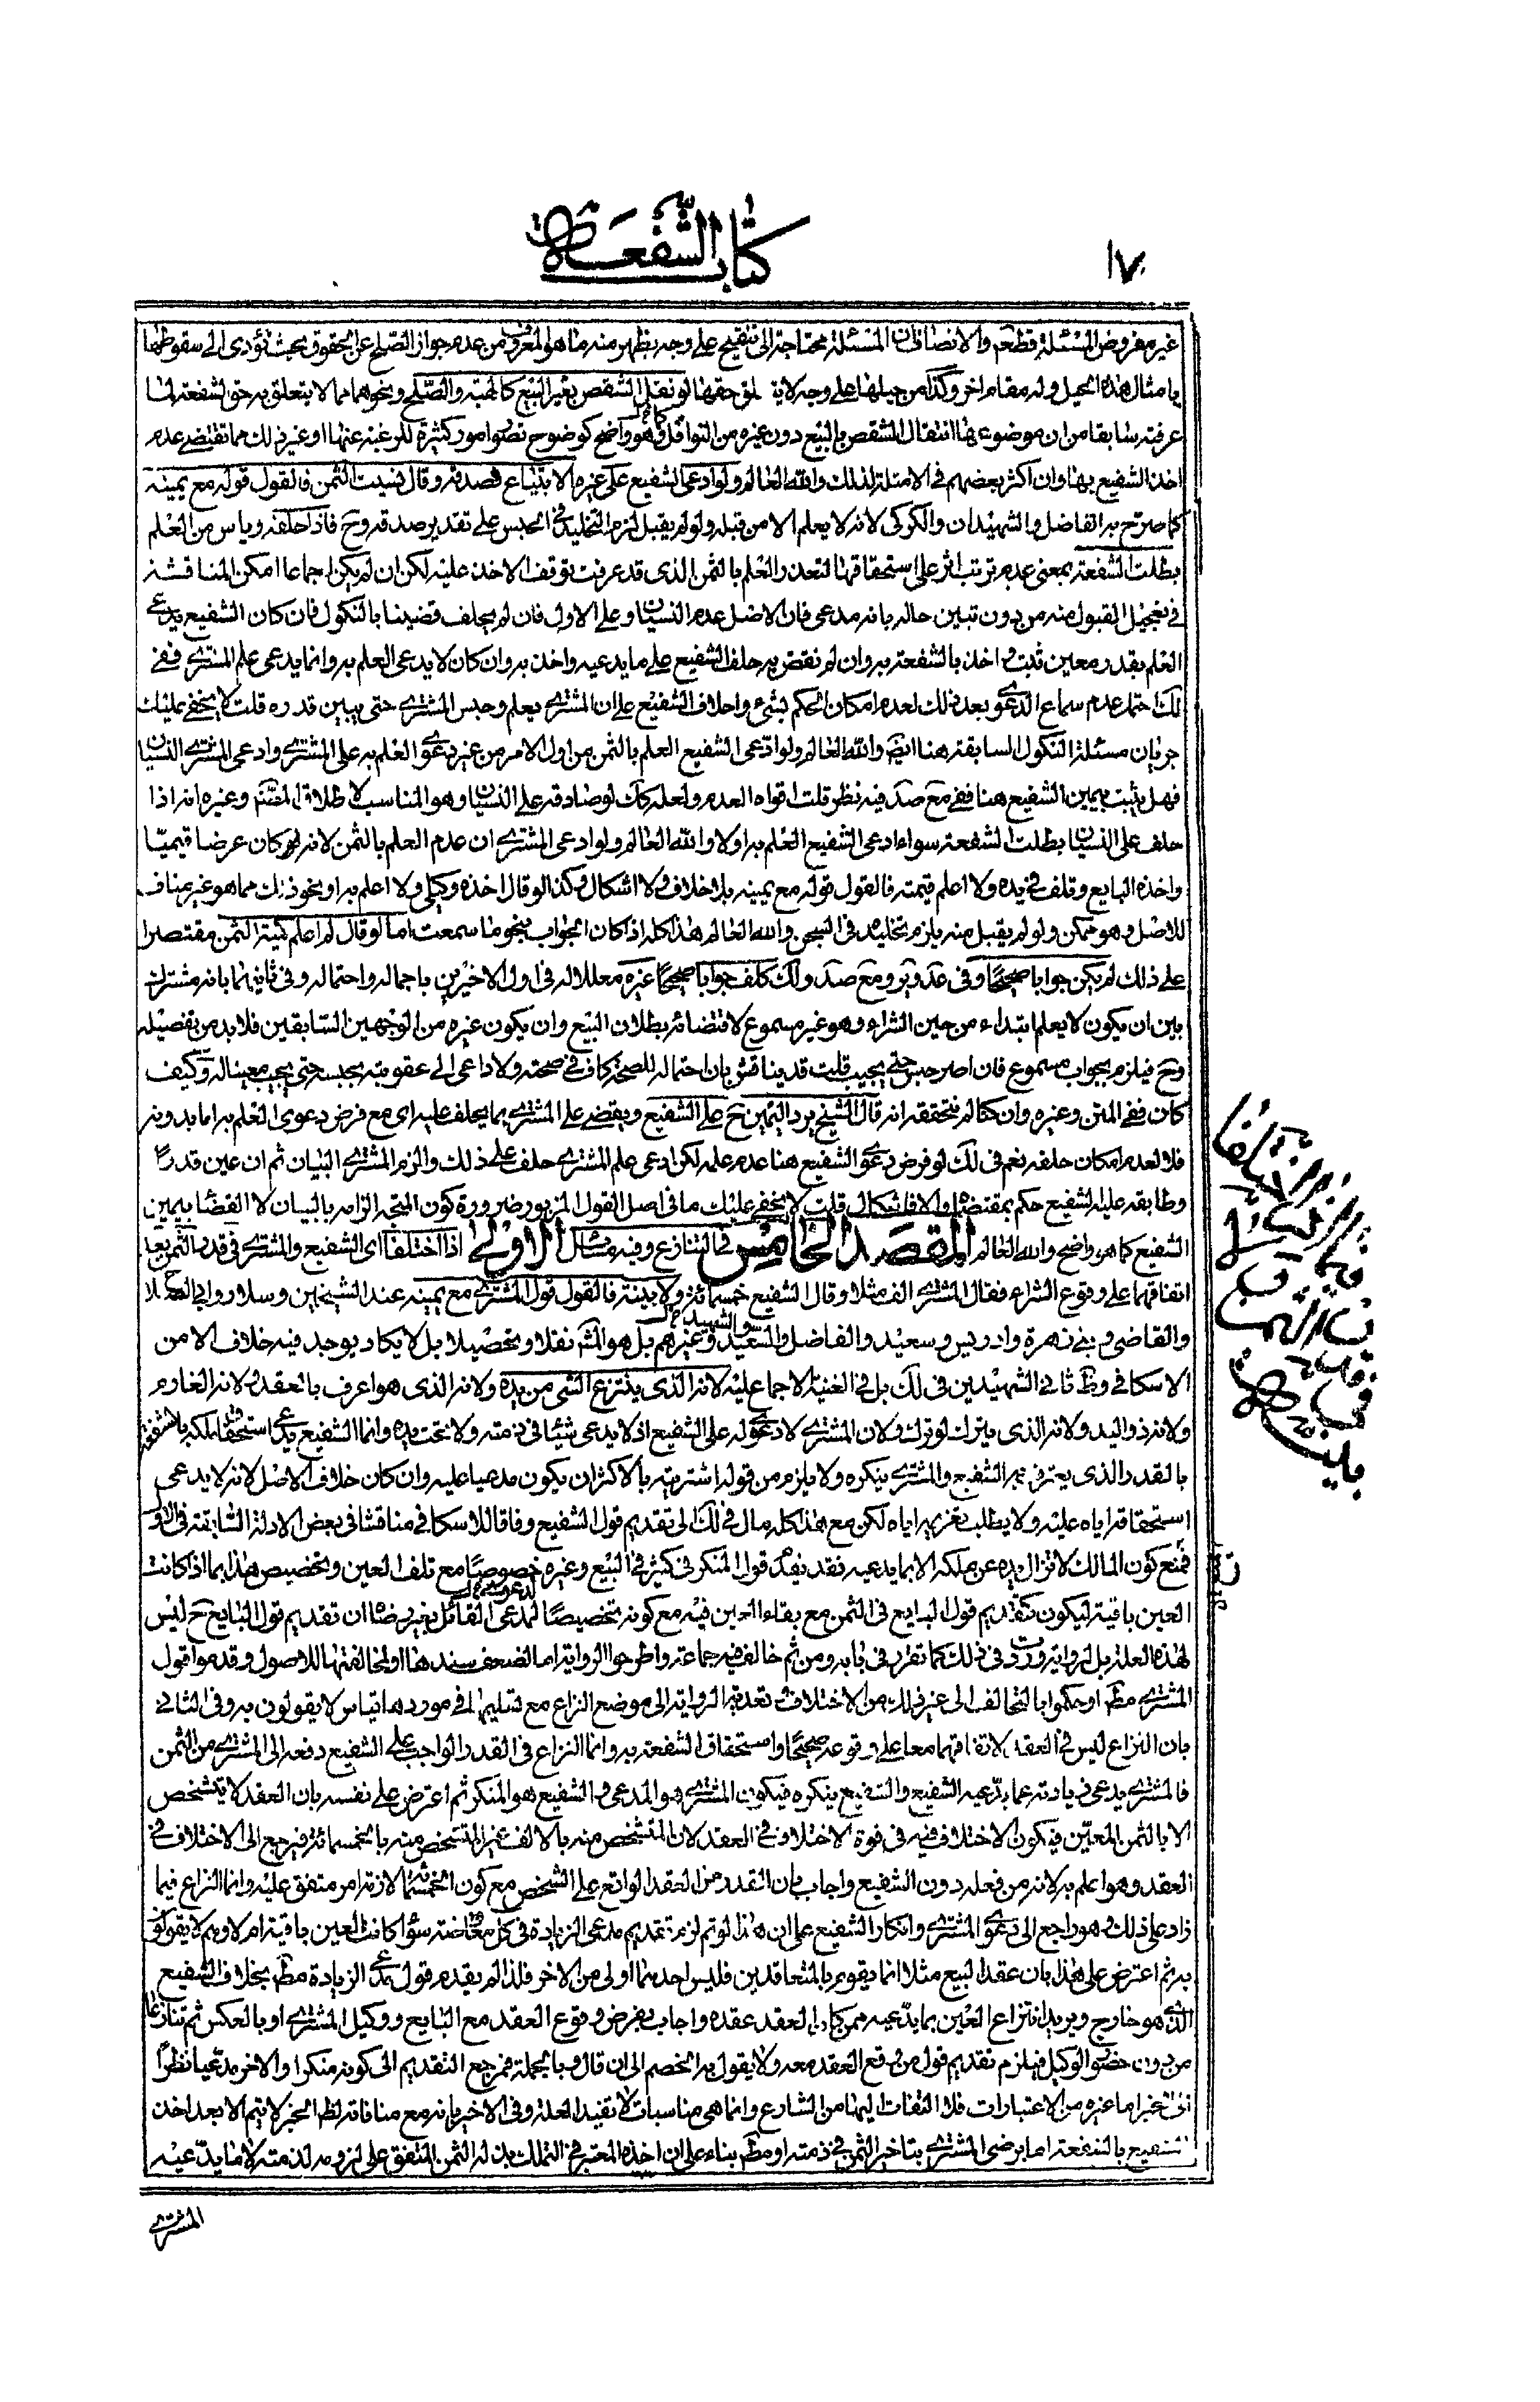 ١٧٠
كتاب الشفعة
غير مفروض المسئلة قطعا والانصاف ان المسئلة محتاجة الى تنقيح على وجه يظهر منه ما هو المعروف من عدم جواز الصلح عن الحقوق بحيث تؤدى الى سقوطها
بامثال هذه الحيل وله مقام اخر وكذا من حيلها على وجه لا يتعلق حقها لو نقل الشقص بغير البيع كالهبة والصلح ونحوهما مما لا يتعلق به حق الشفعة لما
عرفته سابقا من ان موضوعها انتقال الشقص بالبيع دون غيره من النواقل وهو واضح كوضوح تصور امور كثيرة للرغبة عنها او غير ذلك مما تقتضي عدم
اخذ الشفيع بها وان اكثر بعضهم في الامثلة لذلك والله العالم ولو ادعى الشفيع على غيره الابتياع فصدقه وقال نسيت الثمن فالقول قوله مع يمينه
كما صرح به الفاضل والشهيدان والكركى لانه لا يعلم الا من قبله ولو لم يقبل لزم التخليد في الحبس على تقدير صدقه وح فاذا حلفه وياس من العلم
بطلت الشفعة بمعنى عدم ترتب اثر على استحقاقها لتعذر العلم بالثمن الذى قد عرفت توقف الاخذ عليه لكن ان لم يكن اجماعا امكن المناقشة
في تعجيل القبول منه من دون تبين حاله بانه مدعى فان الاصل عدم النسيان وعلى الاول فان لم يحلف قضينا بالنكول فان كان الشفيع يدعى
العلم بقدر معين ثبت و اخذ بالشفعة به وان لم نقض به حلف الشفيع على ما يدعيه واخذ به وان كان لا يدعى العلم به وانما يدعى علم المشترى ففى
لك احتمل عدم سماع الدعوى بعد ذلك لعدم امكان الحكم بشىء واحلاف الشفيع على ان المشترى يعلم وحبس المشترى حتى يبين قدره قلت لا يخفى عليك
جريان مسئلة النكول السابقة هنا ايضا والله العالم ولو ادعى الشفيع العلم بالثمن من اول الامر من غير دعوى العلم به على المشترى وادعى المشترى النسيان
فهل يثبت بيمين الشفيع هنا ففى مع صد فيه نظر قلت اقواه العدم ولعله كك لو صادقه على النسيان وهو المناسب لاطلاق المصنف وغيره انه اذا
حلف على النسيان بطلت الشفعة سواء ادعى الشفيع العلم به اولا والله العالم ولو ادعى المشترى ان عدم العلم بالثمن لانه كان عرضا قيميا
واخذه البايع وتلف في يده ولا اعلم قيمته فالقول قوله مع يمينه بلا خلاف ولا اشكال وكذا لو قال اخذه وكيلى ولا اعلم به او نحو ذلك مما هو غير مناف
للاصل وهو ممكن ولو لم يقبل منه يلزم تخليده في السجن والله العالم هذا كله اذا كان الجواب بنحو ما سمعت اما لو قال لم اعلم كمية الثمن مقتصرا
على ذلك لم يكن جوابا صحيحا وفى عد وير ومع صد ولك كلف جوابا صحيحا غيره معللا له في اول الاخيرين باجماله واحتماله وفى ثانيهما بانه مشترك
بين ان يكون لا يعلم ابتداء من حين الشراء وهو غير مسموع لاقتضائه بطلان البيع وان يكون غيره من الوجهين السابقين فلا بد من تفصيله
وح فيلزم بجواب مسموع فان اصر حبس حتى يجيب قلت قد يناقش بان احتماله للصحة كاف في صحته ولا داعى الى عقوبته بحبسه حتى يجيب معينا له وكيف
كان ففى المتن وغيره وان كنا لم نتحققه انه قال الشيخ يرد اليمين ح على الشفيع ويقضى على المشترى بما يحلف عليه اى مع فرض دعوى العلم به اما بدونه
فلا لعدم امكان حلفه نعم فى لك لو فرض دعوى الشفيع هنا عدم علمه لكن ادعى علم المشترى حلف على ذلك والزم المشترى البيان ثم ان عين قدرا
وطابقه عليه الشفيع حكم بمقتضاه والا فاشكال قلت لا يخفى عليك ما فى اصل القول المزبور ضرورة كون المتجه الزامه بالبيان لا القضاء بيمين
الشفيع كما هو واضح والله العالم المقصد الخامس في التنازع وفيه مسائل الاولى اذا اختلفا اى الشفيع والمشترى فى قدر الثمن بعد
اتفاقهما على وقوع الشراء فقال المشترى الف مثلا وقال الشفيع خمسمائة ولا بينة فالقول قول المشترى مع يمينه عند الشيخين وسلار وابى الصلاح
والقاضى وبنى زهرة وادريس وسعيد والفاضل والسعيد والشهيد وغيرهم بل هو المشهور نقلا وتحصيلا بل لا يكاد يوجد فيه خلاف الا من
الاسكافى وظ ثانى الشهيدين فى لك بل فى الغنية الاجماع عليه لانه الذى ينتزع الشى من يده ولانه الذى هو اعرف بالعقد ولانه الغارم
ولانه ذو اليد ولانه الذى يترك لو ترك ولان المشترى لا دعوى له على الشفيع اذ لا يدعى شيئا فى ذمته ولا تحت يده وانما الشفيع يدعى استحقاق ملكه بالشفعة
بالقدر الذى يعترف به الشفيع والمشترى ينكره ولا يلزم من قوله اشتريته بالاكثر ان يكون مدعيا عليه وان كان خلاف الاصل لانه لا يدعى
استحقاقه اياه عليه ولا يطلب تغريمه اياه لكن مع هذا كله مال في لك الى تقديم قول الشفيع وفاقا للاسكافى مناقشا فى بعض الادلة السابقة فى الاول
بمنع كون المالك لا تزال يده عن ملكه الا بما يدعيه فقد يقدم قول المنكر فى كثير في البيع وغيره خصوصا مع تلف العين وتخصيص هذا بما اذا كانت
العين باقية ليكون كتقديم قول البايع فى الثمن مع بقاء العين فيه مع كونه تخصيصا لمدعى القائل بغير رضاه ان تقديم قول البايع ح ليس
لهذه العلة بل لرواية وردت فى ذلك كما تقرر فى بابه ومن ثم خالف فيه جماعة واطرحوا الرواية اما لضعف سندها او لمخالفتها للاصول وقدموا قول
المشترى مطلقا او حكموا بالتحالف الى غير ذلك من الاختلاف وتعدية الرواية الى موضع النزاع مع تسليمها فى موردها قياس لا يقولون به وفى الثانى
بان النزاع ليس في العقد لاتفاقهما معا على وقوعه صحيحا واستحقاق الشفعة به وانما النزاع فى القدر الواجب على الشفيع دفعه الى المشترى من الثمن
فالمشترى يدعى زيادته عما يدعيه الشفيع والشفيع ينكره فيكون المشترى هو المدعى والشفيع هو المنكر ثم اعترض على نفسه بان العقد لا يتشخص
الا بالثمن المعين فيكون الاختلاف فيه فى قوة الاختلاف في العقد لان المتشخص منه بالالف غير المتشخص منه بالخمسمائة فيرجع الى الاختلاف في
العقد وهو اعلم به لانه من فعله دون الشفيع واجاب بان القدر من العقد الواقع على الشخص مع كون الخمسمائة لازمة امر متفق عليه وانما النزاع فيما
زاد على ذلك وهو راجع الى دعوى المشترى وانكار الشفيع على ان هذا لو تم لزم تقديم مدعى الزيادة فى كل معاوضة سواء كانت العين باقية ام لا وهم لا يقولون
به ثم اعترض على هذا بان عقد البيع مثلا انما يقوم بالمتعاقدين فليس احدهما اولى من الاخر فلذا لم يقدم قول مدعى الزيادة مطلقا بخلاف الشفيع
الذى هو خارج ويريد انتزاع العين بما يدعيه ممن كان العقد عقده واجاب بفرض وقوع العقد مع البايع ووكيل المشترى او بالعكس ثم تنازعا
من دون حضور الوكيل فيلزم تقديم قول من وقع العقد معه ولا يقول به الخصم الى ان قال وبالجملة فمرجع التقديم الى كونه منكرا والاخر مدعيا نظرا
الى الخبر اما غيره من الاعتبارات فلا التفات اليها من الشارع وانما هى مناسبات لا تفيد العلة وفى الاخير بانه مع منافاته لظاهر الخبر لا يتم الا بعد اخذ
الشفيع بالشفعة اما برضى المشترى بتاخير الثمن في ذمته او مطلقا بناء على ان اخذه المعتبر في التملك بذله الثمن المتفق على لزومه لذمته لا ما يدعيه
المشترى